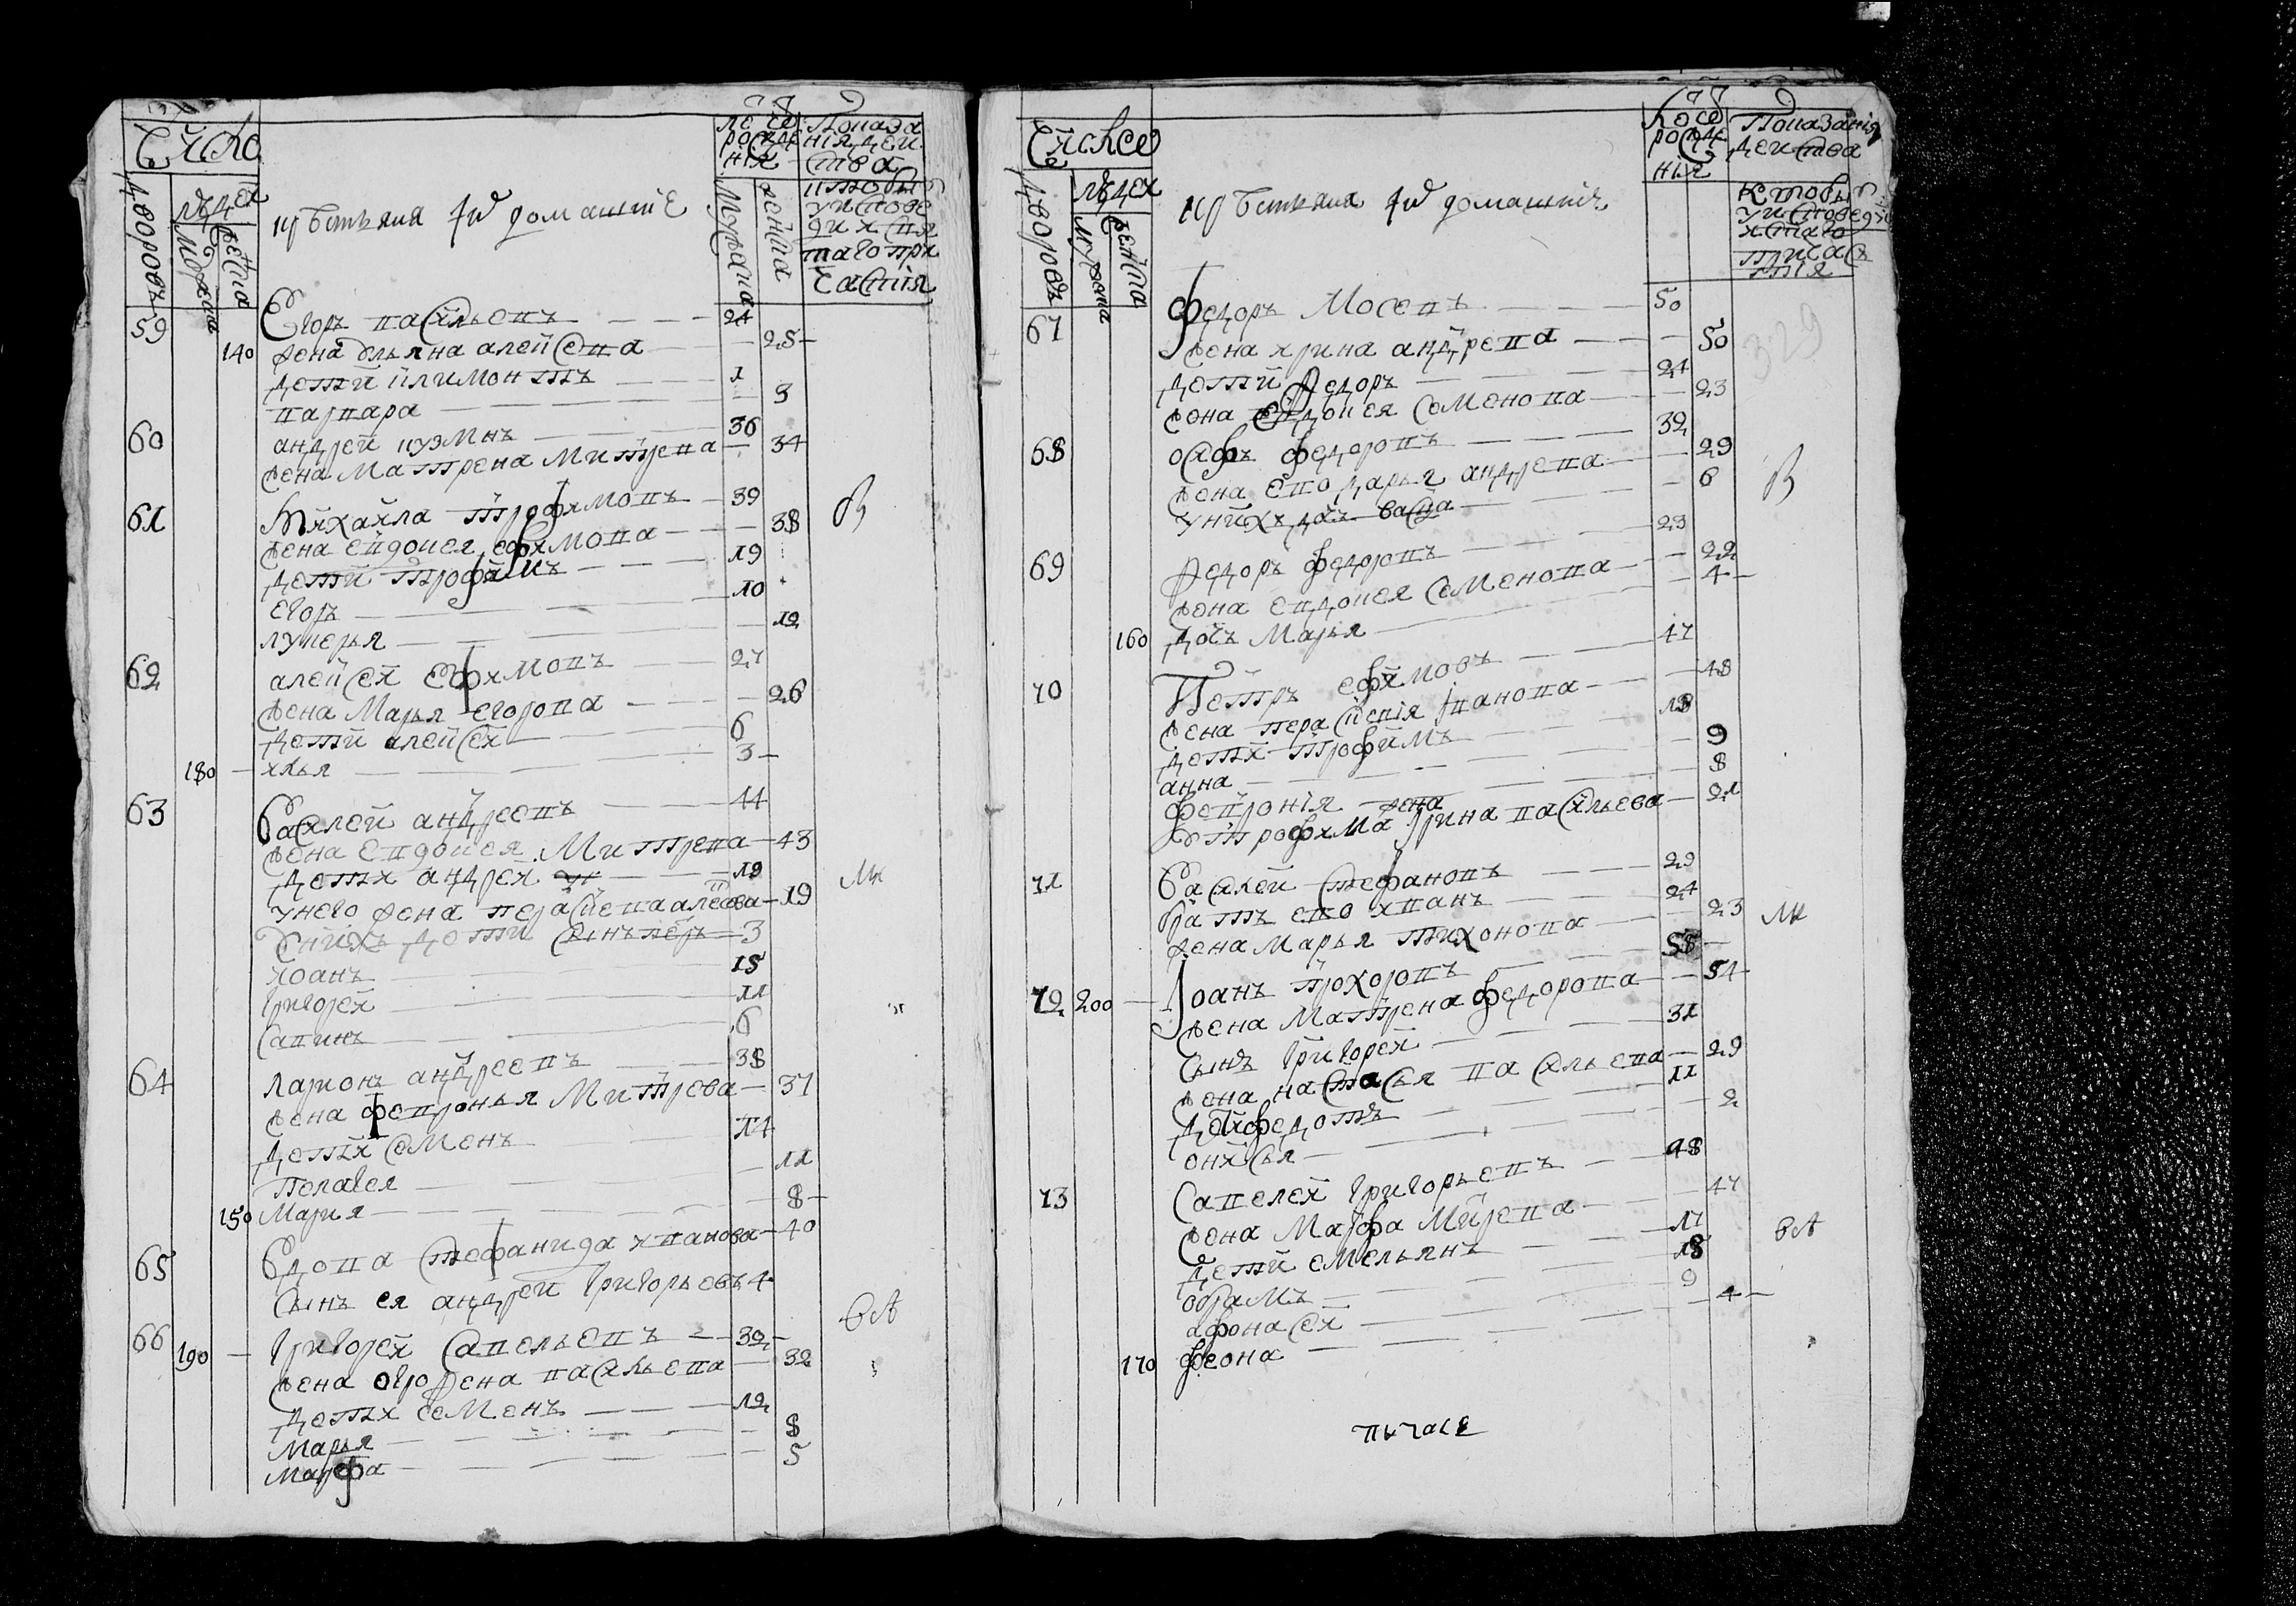 Число
дворовъ
людех
мужеска
женска
крестьяня и домашние
лето рожде нїя
мужеска
женска
Показа нїя дей ства
кто былъ у испове ди х свя таго при частїя
59 Егоръ васильевъ 24
140 жена ульяна алексева 25
дети филимонтъ 1
варвара 3
60 андрей кузминъ 36
жена Матрена Митрева 34
61 Михайла трофимовъ 39
жена евдокея ефимова 38
дети трофимъ 19
егоръ 10
лукерья 12
62 алексей ефимовъ 27
жена Марья егорова 26
дети алексей 6
180 илья 3
63 Василей андреевъ 44
жена евдокея Митрева 43
дети андрей 19
у него жена перасковья алексеева 19
у нихъ дети 3
иоанъ 15
григорей 11
савинъ 6
64 ларионъ андреевъ 38
жена февронья Митрева 37
дети семенъ 14
Пелагея 11
150 Мария 8
65 вдова стефанида иванова 40
сынъ ея андрей григорьевъ 4
66 190 григорей савельевъ 32
жена огрофена васильева 32
дети семенъ 12
Марья 8
Марфа 5
Число
дворовъ
людех
мужеска
женска
крестьяня и домашния
рожде нїя
Показания действа
кто былъ у исповеди и святаго причастїя
67 федоръ Мосевъ 50
жена ирина андрева 50
дети федоръ 24
жена евдокея семенова 23
68 осифъ федоровъ 32
жена ево дарья андрева 29
у нихъ дочь васса 6
69 федоръ федоровъ 23
жена евдокея семенова 22
160 дочь Марья 4
70 Петръ ефимовъ 47
жена перасковия иванова 48
дети трофимъ 18
анна 9
феврония 8
у трофима жена ирина васильева 21
71 Василей стефановъ 29
братъ ево иванъ 24
жена Марья тихонова 23
72 200 Иоанъ прохоровъ 58
жена Матрена федорова 54
сынъ григорей 31
жена настасья васильева 29
дети федотъ 11
онисья 2
73 савелей григорьевъ 48
жена Марфа Миревa 47
дети емельянъ 17
обрамъ 18
афонасей 9
170 феона 4
329